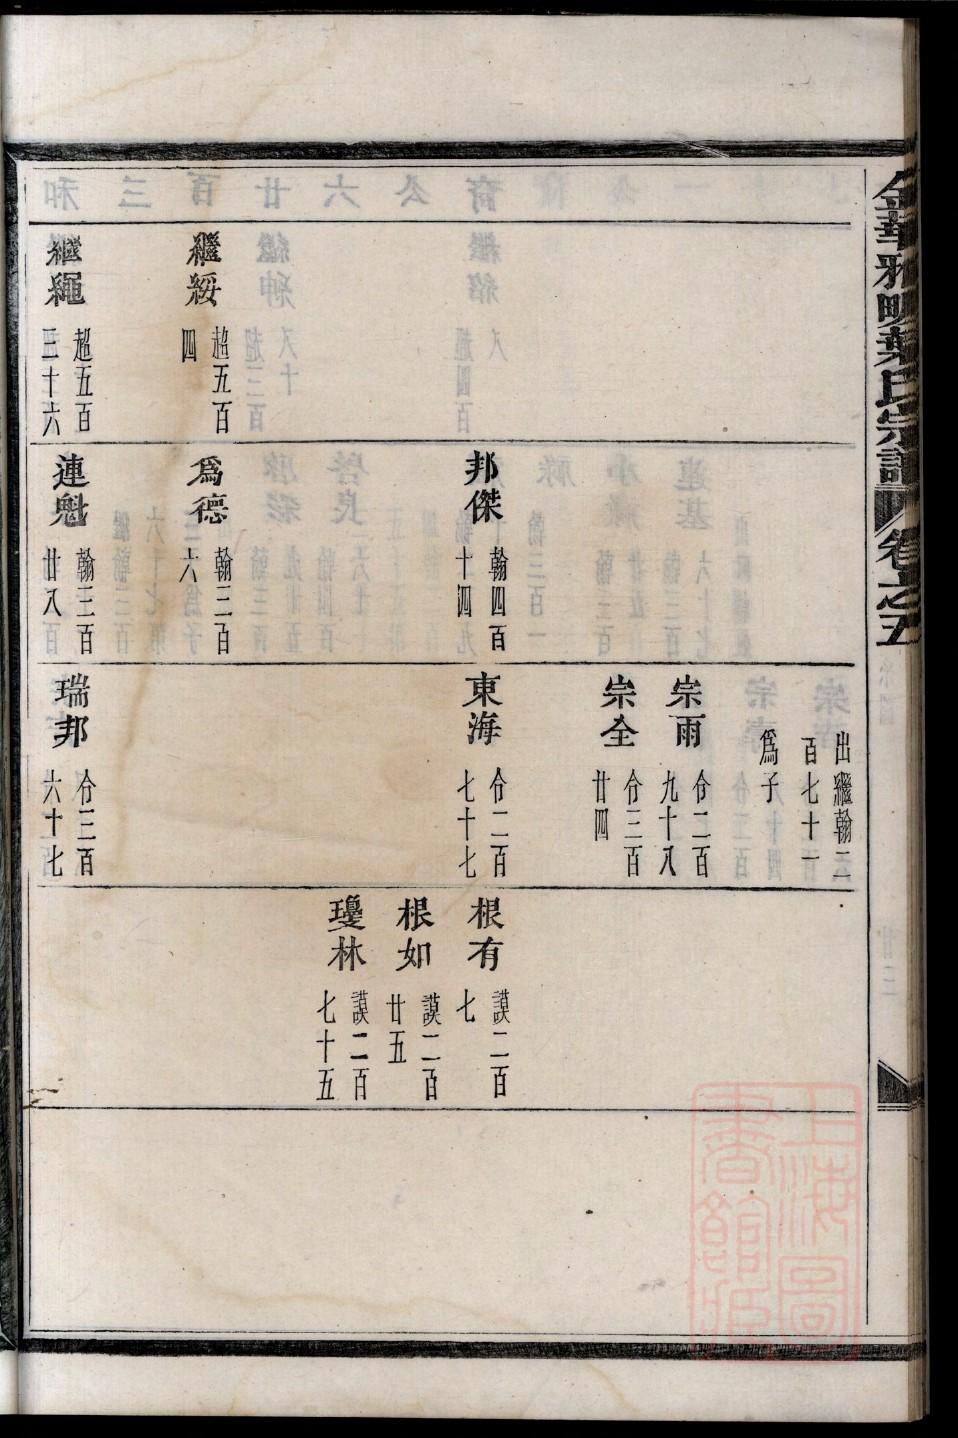 金華雅畈葉氏宗譜
卷之五
繼綏
超五百
四
繼繩
超五百
三十六
邦傑
翰四百
十四
為德
翰三百
六
連魁
翰三百
廿八
出繼翰二
百七十一
為子
宗雨
份二百
九十八
宗全
份三百
廿四
東海
份二百
七十七
瑞邦
份三百
六十七
根有
謨二百
七
根如
謨二百
廿五
瓊林
謨二百
七十五
上海圖
書館藏